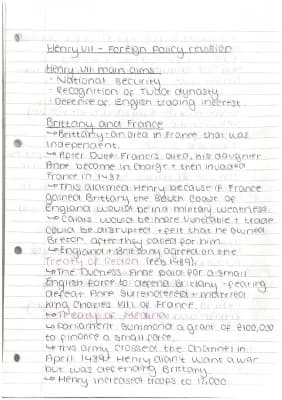 Henry VII - Foreign Policy revision
Henry VII main aims:
- National security
- Recognition of Tudor dynasty
- Defence of English trading interest.
Brittany and France
↳ Brittany - an area in France that was
independent.
↳ After Duke Francis died, his daughter
Anne become in charge + then invaded
France in 1487.
↳ This alarmed Henry because if France
gained Brittany the South Coast of
England would be in a military weakness.
↳ Calais would be more vulnerable + trade
could be disrupted + felt that he owned
Breton after they cared for him.
↳ England + Brittany agreed on the
Treaty of Redon (Feb 1489).
↳ The Duchess Anne paid for a small
English force to defend Brittany - fearing
defeat Anne surrendered + married
King Charles VIII of France.
↳ Treaty of Medina
↳ Parliament summond a grant of £100,000
to finance a small force.
↳ This army crossed the Channel in
April 1489. Henry didn't want a war
but was defending Brittany.
↳ Henry increased troops to 12,000.